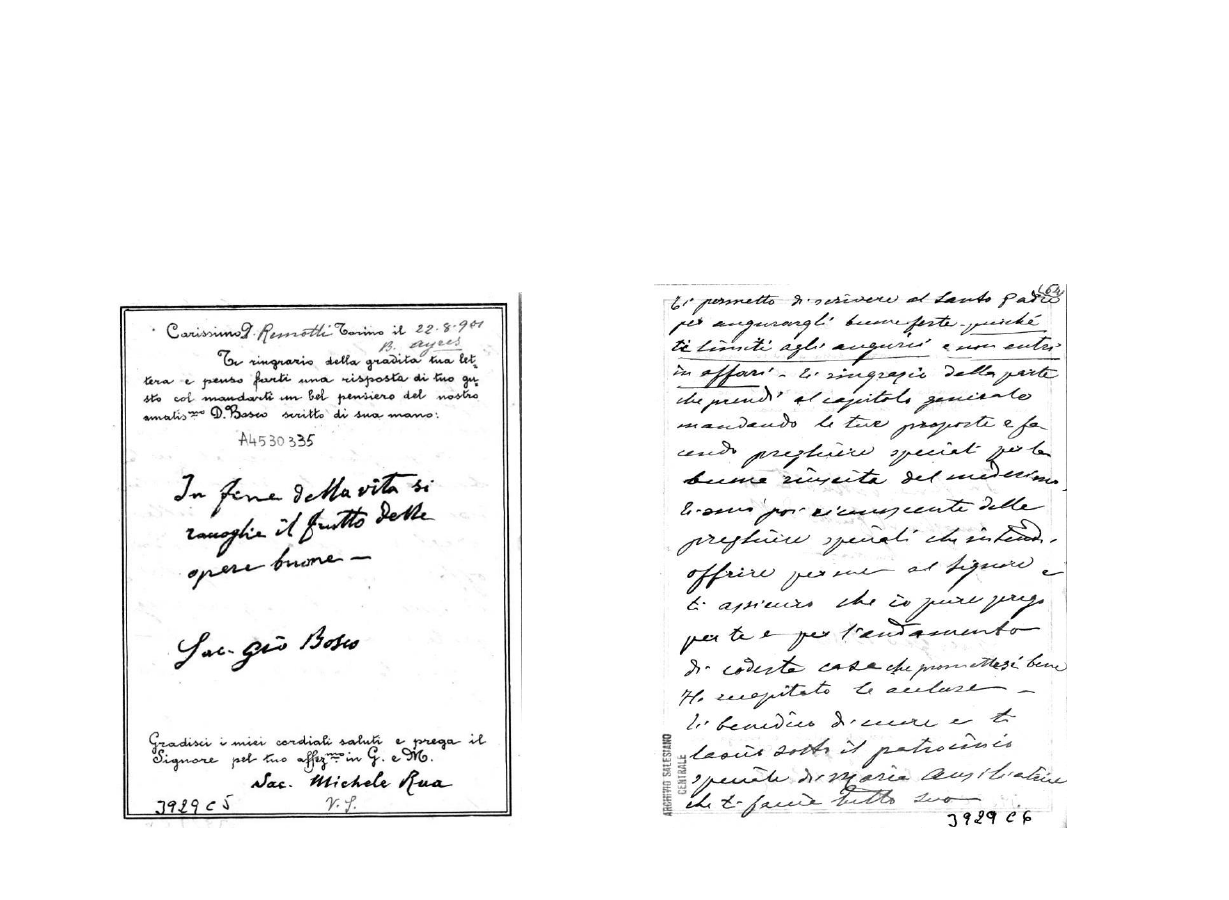 Carissimo D. Remotti Torino il 22-8-901
B. Ayres
Ti ringrazio della gradita tua let-
tera e penso farti una risposta di tuo gu-
sto col mandarti un bel pensiero del nostro
amatis.mo D. Bosco scritto di sua mano:
A4530335
In fine della vita si
raccoglie il frutto delle
opere buone —
Sac. Gio Bosco
Gradisci i miei cordiali saluti e prega il
Signore pel tuo affez.mo in G. e M.
Sac. Michele Rua
V. S.
3929 C 5
Ti permetto di scrivere al Santo Padre
per augurargli buone feste purché
ti limiti agli augurii e non entri
in affari - Ti ringrazio della parte
che prendi al capitolo generale
mandando le tue proposte e fa-
cendo preghiere speciali per la
buona riuscita del medesimo.
Ti sono poi riconoscente delle
preghiere speciali che intendi
offrire per me al Signore e
ti assicuro che io pure prego
per te e per l'andamento
di codesta casa che promettesi bene
Ho recapitato le accluse —
Ti benedico di cuore e ti
lascio sotto il patrocinio
speciale di Maria Ausiliatrice
che ti faccia tutto suo
ARCHIVIO SALESIANO
CENTRALE
3929 C 6